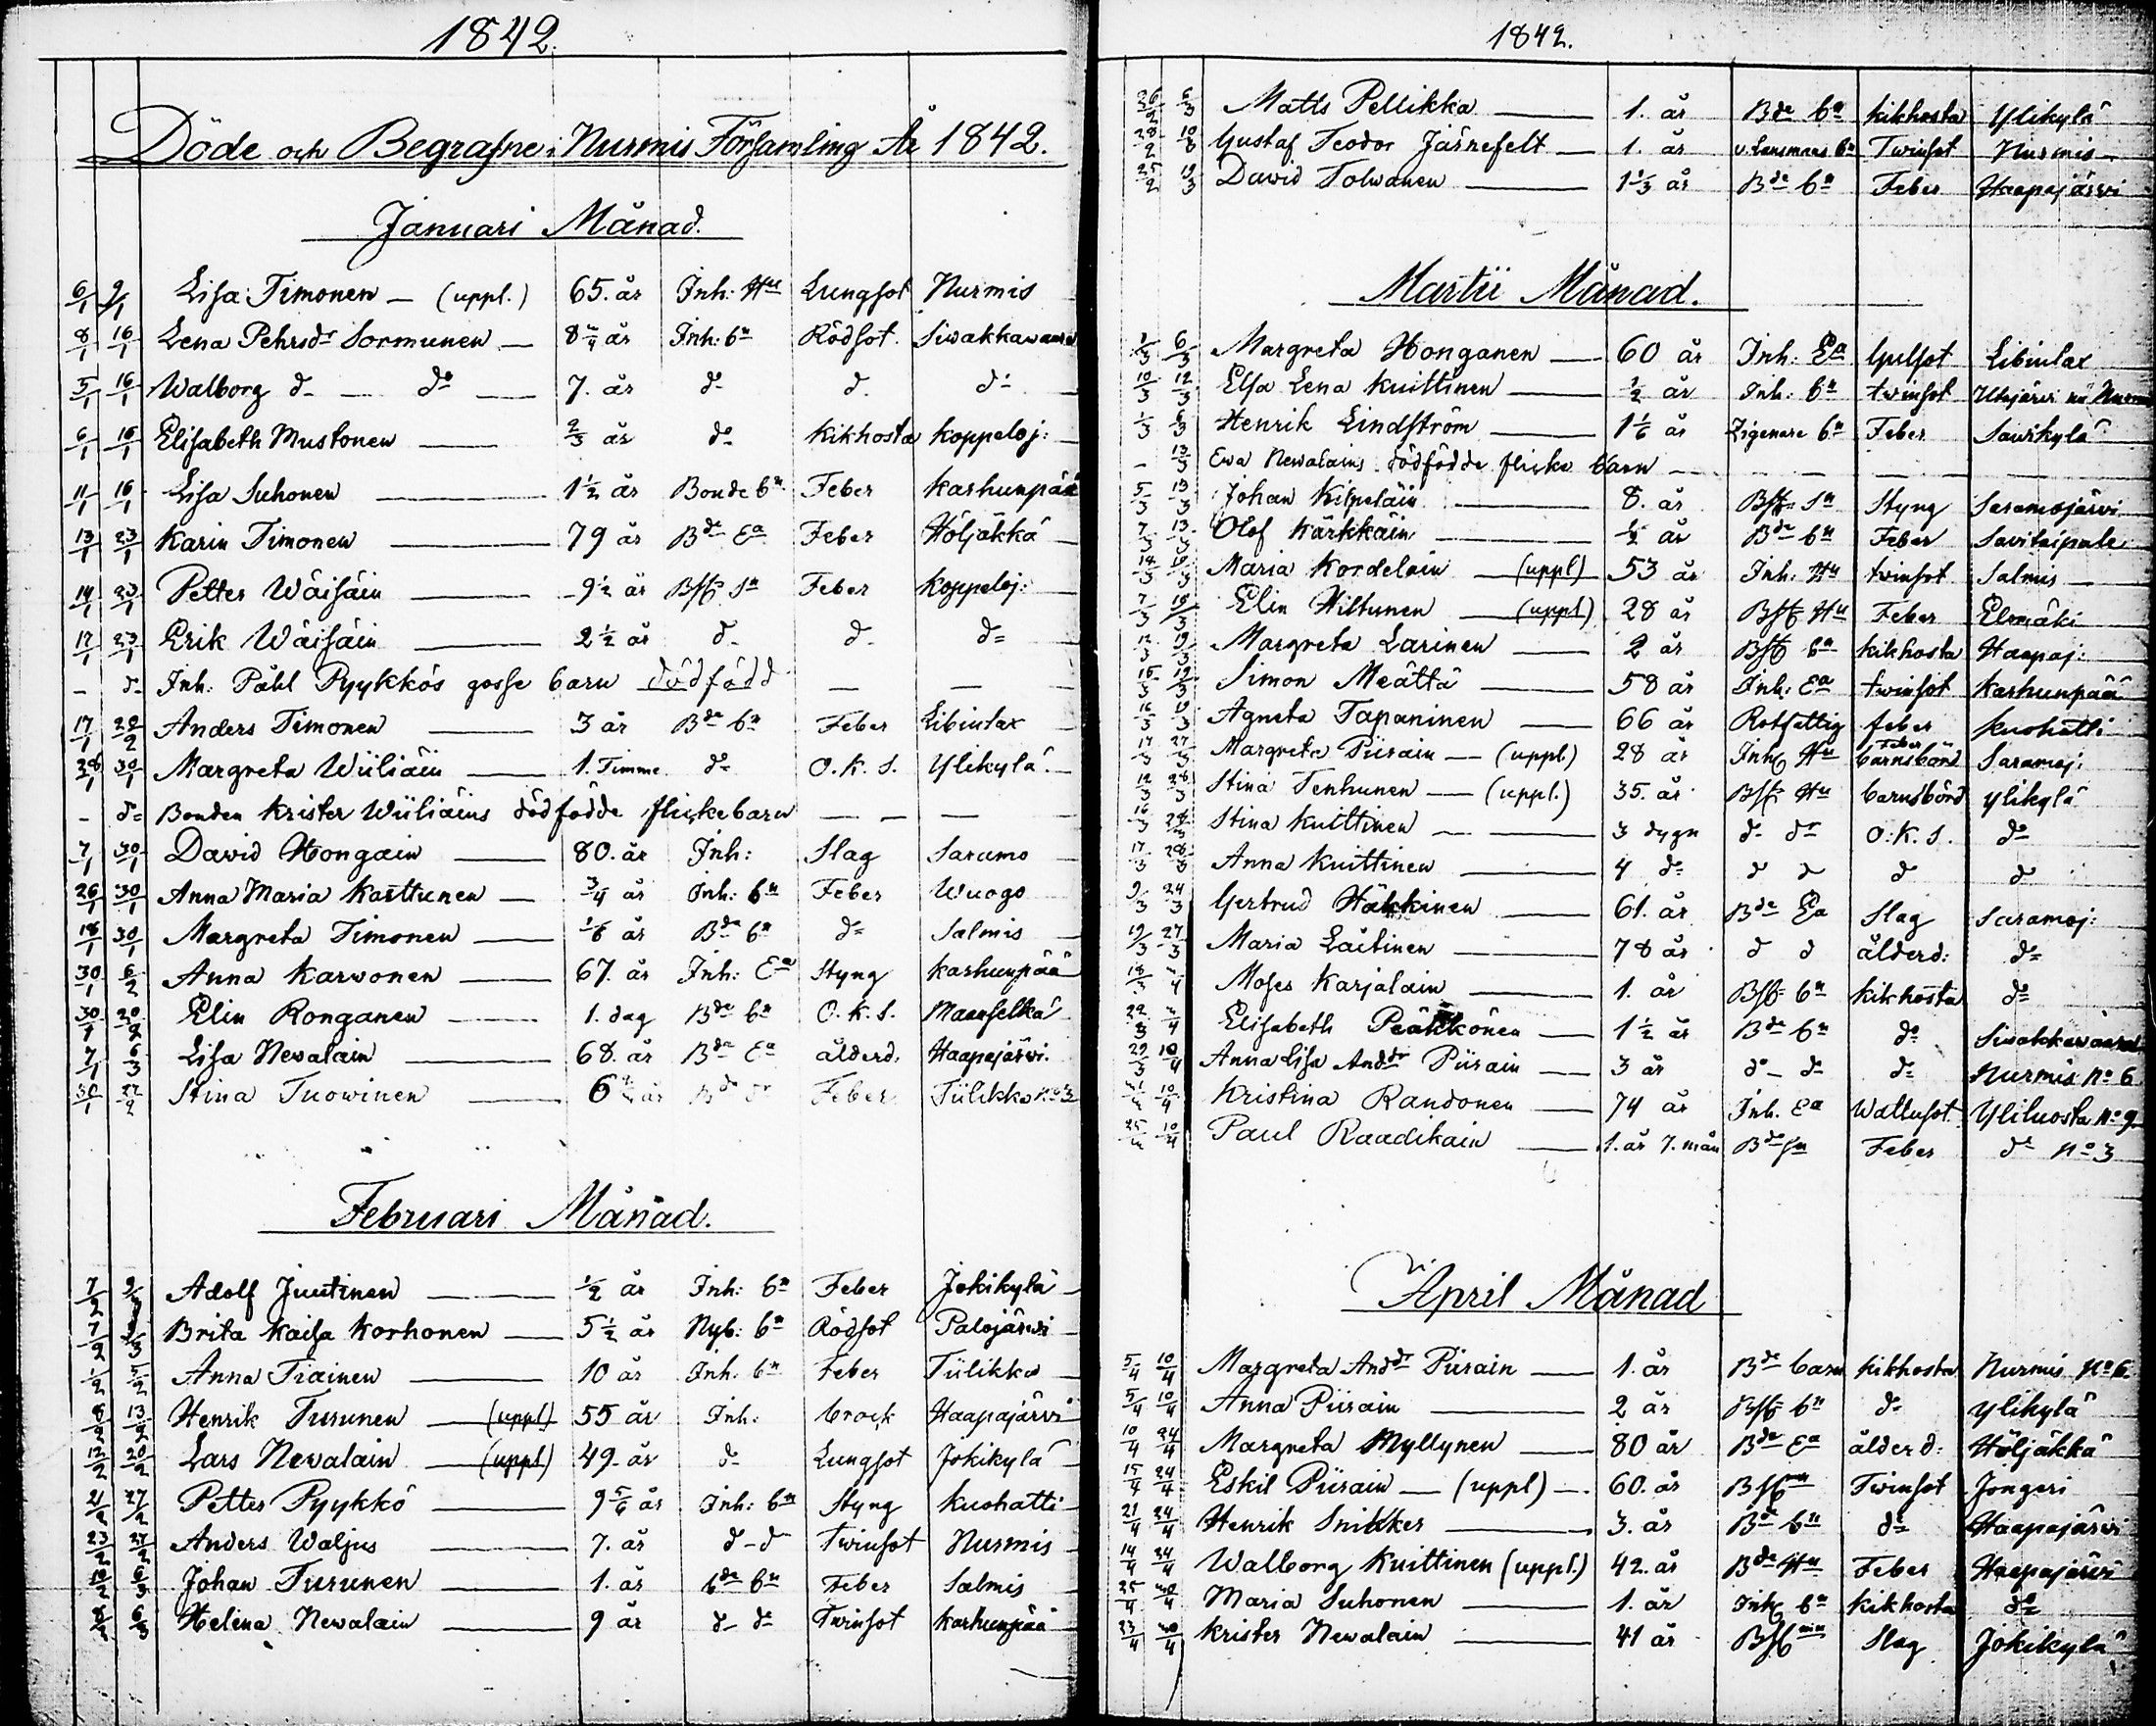 1842.
Döde och Begrafne i Nurmis Församling År 1842.
Januari Månad.
6/1 9/1 Lisa Timonen — (uppl.) 65. år Inh: Hu Lungsot Nurmis
8/1 16/1 Lena Pehrsdr Sormunen — år Inh: bn Rödsot. Siwakkawaara
5/1 16/1 Walborg do — do — 7. år do do do
6/1 16/1 Elisabeth Mustonen — 2/3 år do Kikhosta Koppeloj:
11/1 16/1 Lisa Suhonen — 1 1/2 år Bonde bn Feber Karhunpää
13/1 23/1 Karin Timonen — 79 år Bde Ea Feber Höljäkkä
14/1 23/1 Petter Wäisäin — 9 1/2 år Bfg Sn Feber Koppeloj:
17/1 23/1 Erik Wäisäin — 2 1/2 år do do do
— do Inh: Påhl Pyykkös gosse barn dödfödd — — —
17/1 20/2 Anders Timonen — 3 år Bde bn Feber Libintax
28/1 30/1 Margreta Wiiliäin — 1. Timme do O.K.S. Ylikylä
— do Bonden Krister Wiiliäins dödfödde flickebarn — — —
7/1 30/1 David Hongain — 80. år Inh: Slag Saramo
26/1 30/1 Anna Maria Karttunen — 3/4 år Inh: bn Feber Wuogo
18/1 30/1 Margreta Timonen — 1/6 år Bde bn do Salmis
30/1 6/2 Anna Karwonen — 67. år Inh: Ea Styng Karhunpää
30/1 20/2 Elin Ronganen — 1. dag Bde bn O.K.S. Maanselkä
7/1 6/3 Lisa Newalain — 68. år Bde Ea ålderd. Haapajärvi.
30/1 27/2 Stina Tuowinen — Feber Tiilikka No 3
Februari Månad.
7/2 Adolf Juutinen — 1/2 år Inh: bn Feber Jokikylä
7/2 Brita Kaisa Korhonen — 5 1/2 år Nyb: bn Rödsot Palojärvi
1/2 5/2 Anna Tiainen — 10 år Inh. bn Feber Tiilikka
8/2 13/2 Henrik Turunen — (uppl) 55 år Inh: brock Haapajärvi
12/2 20/2 Lars Newalain — (uppl) 49. år do Lungsot Jokikylä
21/2 27/2 Petter Pyykkö — 9 5/6 år Inh: bn Styng Kuohatti
23/2 27/2 Anders Waljus — 7. år d–d Twinsot Nurmis
10/2 6/3 Johan Turunen — 1. år bde bn Feber Salmis
6/3 Helena Newalain — 9 år d– do Twinsot Karhunpää
1842.
26/2 6/3 Matts Pellikka — 1. år Bde bn Kikhosta Ylikylä
28/2 Gustaf Teodor Järnefelt — 1. år v. Lansmans bn Twinsot Nurmis
25/2 David Tolwanen — 1 1/3 år Bde bn Feber Haapajärvi
Martii Månad.
1/3 6/3 Margreta Honganen — 60 år Inh: Ea Gulsot Libintax
10/3 12/3 Elsa Lena Kuittinen — 1/2 år Inh: bn twinsot
1/3 6/3 Henrik Lindström — 1 1/6 år Zigenare bn Feber Saukylä
— 13/3 Ewa Newalains dödfödde flicke barn — — — —
5/3 13/3 Johan Kilpeläin — 8. år Bfg Sn Styng Saramojärvi
7/3 13/3 Olof Kärkkäin — 1/2 år Bde bn Feber Savitaipale
14/3 Maria Kordelain — (uppl) 53 år Inh: Hu twinsot Salmis
7/3 Elin Hiltunen — (uppl) 28 år Bfg Hu Feber Elomäki
12/3 19/3 Margreta Larinen — 2 år Bfg bn Kikhosta Haapaj:
15/3 19/3 Simon Meättä — 58 år Inh: Ea twinsot Karhunpää
16/3 19/3 Agneta Tapaninen — 66 år Rotfattig feber Kuohatti
17/3 27/3 Margreta Piirain — (uppl) 28 år Inh: Hu Feber barnsbörd Saramoj:
12/3 28/3 Stina Tenhunen — (uppl.) 35. år Bfg Hu barnsbörd Ylikylä
16/3 28/3 Stina Kuittinen — 3 dygn do dr O.K.S. do
17/3 28/3 Anna Kuittinen — 4 do do do do do
9/3 24/3 Gertrud Häkkinen — 61. år Bde Ea Slag Saramoj:
19/3 27/3 Maria Laitinen — 78 år d d ålderd: do
18/3 Moses Karjalain — 1. år Bfg bn Kikhosta do
22/3 Elisabeth Peäkkönen — 1 1/2 år Bde bn do Siwakkawaara
29/3 10/4 Anna Lisa Anddr Piirain — 3 år do – do do Nurmis No 6
10/4 Kristina Randonen — 74 år Inh. Ea Wattusot. Yliluosta No 9
10/4 Paul Raadikain — 1. år 7. mån Bde Sn Feber do No 3
April Månad
5/4 10/4 Margreta Anddr Piirain — 1. år Bde barn Kikhosta Nurmis No 6
5/4 10/4 Anna Piirain — 2 år Bfg bn do Ylikylä
10/4 24/4 Margreta Myllynen — 80 år Bde Ea ålderd: Höljäkkä
15/4 24/4 Eskil Piirain — (uppl) — 60. år Bfg Twinsot Jongeri
21/4 24/4 Henrik Snikker — 3. år Bde bn do Haapajärvi
14/4 24/4 Walborg Kuittinen (uppl.) 42. år Bde Hu Feber Haapajärvi
25/4 Maria Suhonen — 1. år Inh: bn Kikhosta do
23/4 Krister Newalain — 41 år Bfg Slag Jokikylä